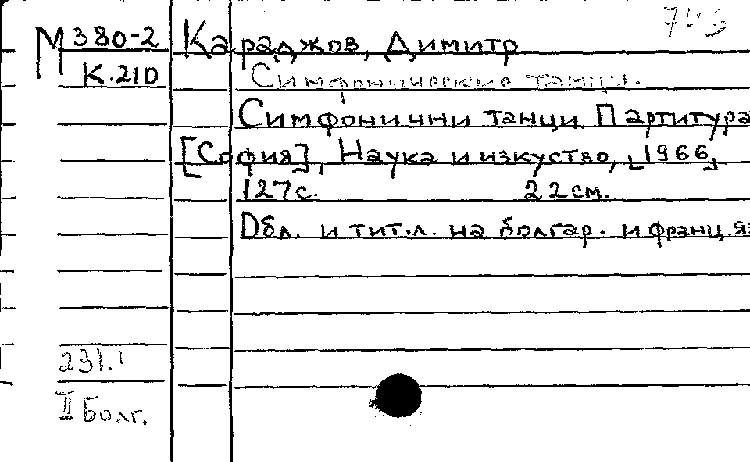 743
М 380-2 Караджов, Димитр
К.210 Симфонические танцы.
Симфонични танци Партитура
[София], Наука и изкуство, [1966]
127с. 22см.
Обл. и тит.л. на болгар. и франц.яз
231.1
II Болг.